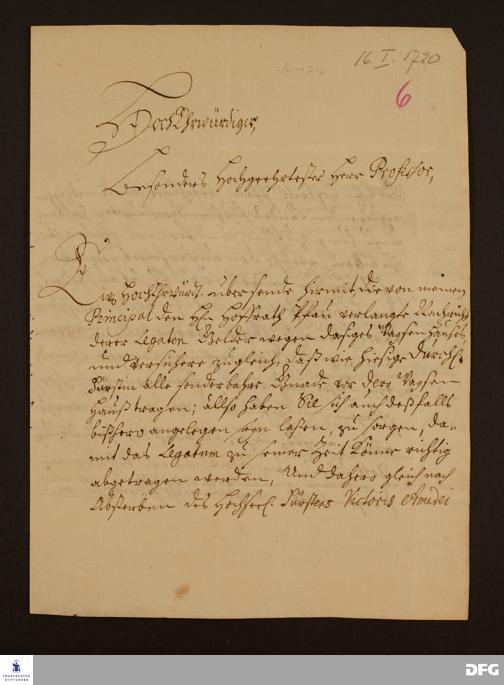 16 I. 1720
A 174
6
HochEhrwürdiger,
besonders Hochgeehrtester Herr Professor,
Ew. HochEhrwürd. übersende hiermit die von meinem
Principal den Hn. Hoffrath Pfau verlangte Nachricht
derer Legaten Gelder wegen dasiges Waysenhauses
und versichere zugleich, daß wie hiesige Durchl.
Fürstin alle sonderbahre Gnade vor dero Waysen
Hauß tragen; allso haben Sie sich auch deßfalls
bißhero angelegen seyn laßen, zu sorgen, da-
mit das Legatum zu seiner Zeit könne richtig
abgetragen werden, Und dahero gleich nach
Absterben des Hochseel. Fürstens Victoris Amadei
FRANCKESCHE
STIFTUNGEN
DFG